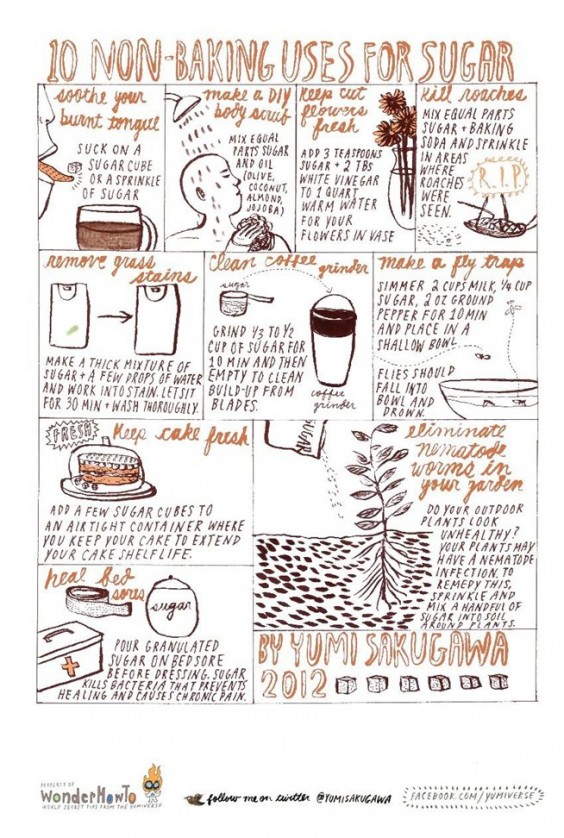 10 NON-BAKING USES FOR SUGAR
soothe your
burnt tongue
SUCK ON A
SUGAR CUBE
OR A SPRINKLE
OF SUGAR
make a DIY
body scrub
MIX EQUAL
PARTS SUGAR
AND OIL
(OLIVE,
COCONUT,
ALMOND,
JOJOBA)
keep cut
flowers
fresh
ADD 3 TEASPOONS
SUGAR + 2 TBS
WHITE VINEGAR
TO 1 QUART
WARM WATER
FOR YOUR
FLOWERS IN VASE
kill roaches
MIX EQUAL PARTS
SUGAR + BAKING
SODA AND SPRINKLE
IN AREAS
WHERE
ROACHES
WERE
SEEN.
R.I.P.
remove grass
stains
MAKE A THICK MIXTURE OF
SUGAR + A FEW DROPS OF WATER
AND WORK INTO STAIN. LET SIT
FOR 30 MIN + WASH THOROUGHLY.
Clean coffee
grinder
sugar
GRIND 1/3 TO 1/2
CUP OF SUGAR FOR
10 MIN AND THEN
EMPTY TO CLEAN
BUILD-UP FROM
BLADES.
coffee
grinder
make a fly trap
SIMMER 2 CUPS MILK, 1/4 CUP
SUGAR, 2 OZ GROUND
PEPPER FOR 10 MIN
AND PLACE IN A
SHALLOW BOWL
FLIES SHOULD
FALL INTO
BOWL AND
DROWN.
FRESH
Keep cake fresh
ADD A FEW SUGAR CUBES TO
AN AIRTIGHT CONTAINER WHERE
YOU KEEP YOUR CAKE TO EXTEND
YOUR CAKE SHELF LIFE.
SUGAR
eliminate
nematode
worms in
your garden
DO YOUR OUTDOOR
PLANTS LOOK
UNHEALTHY?
YOUR PLANTS MAY
HAVE A NEMATODE
INFECTION. TO
REMEDY THIS,
SPRINKLE AND
MIX A HANDFUL OF
SUGAR INTO SOIL
AROUND PLANTS.
heal bed
sores
sugar
POUR GRANULATED
SUGAR ON BEDSORE
BEFORE DRESSING. SUGAR
KILLS BACTERIA THAT PREVENTS
HEALING AND CAUSES CHRONIC PAIN.
BY YUMI SAKUGAWA
2012
PROPERTY OF
WonderHowTo
WORLD SECRET TIPS FROM THE YUMIVERSE
follow me on twitter @YUMISAKUGAWA
FACEBOOK.COM/YUMIVERSE